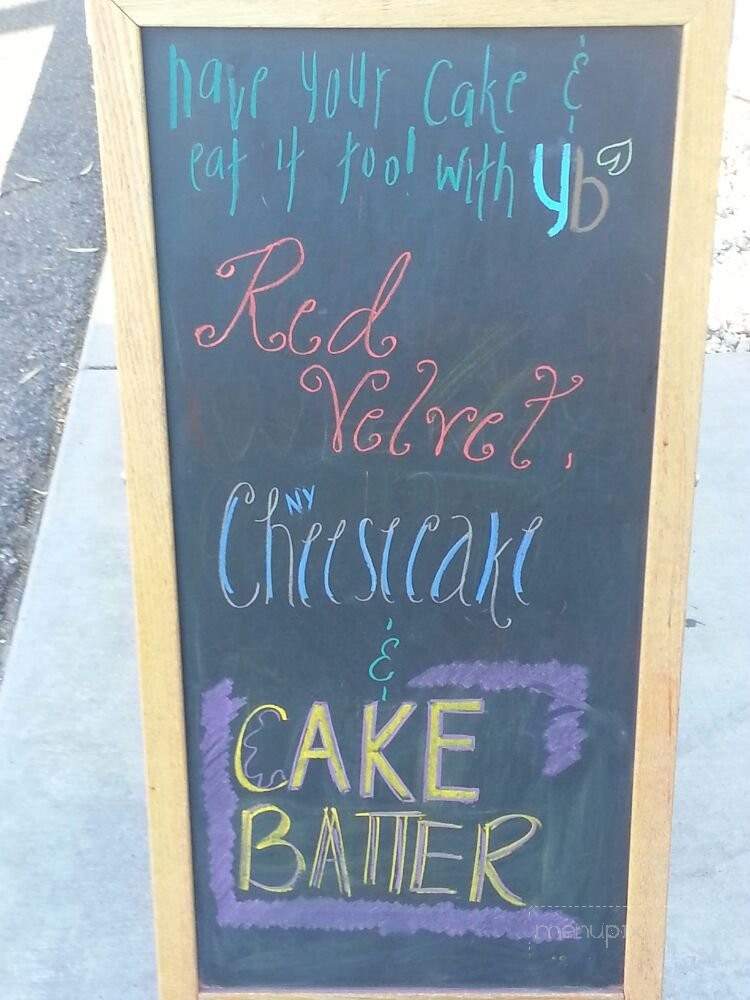 have your cake &
eat it too! with yb
Red
Velvet,
NY
Cheesecake
&
CAKE
BATTER